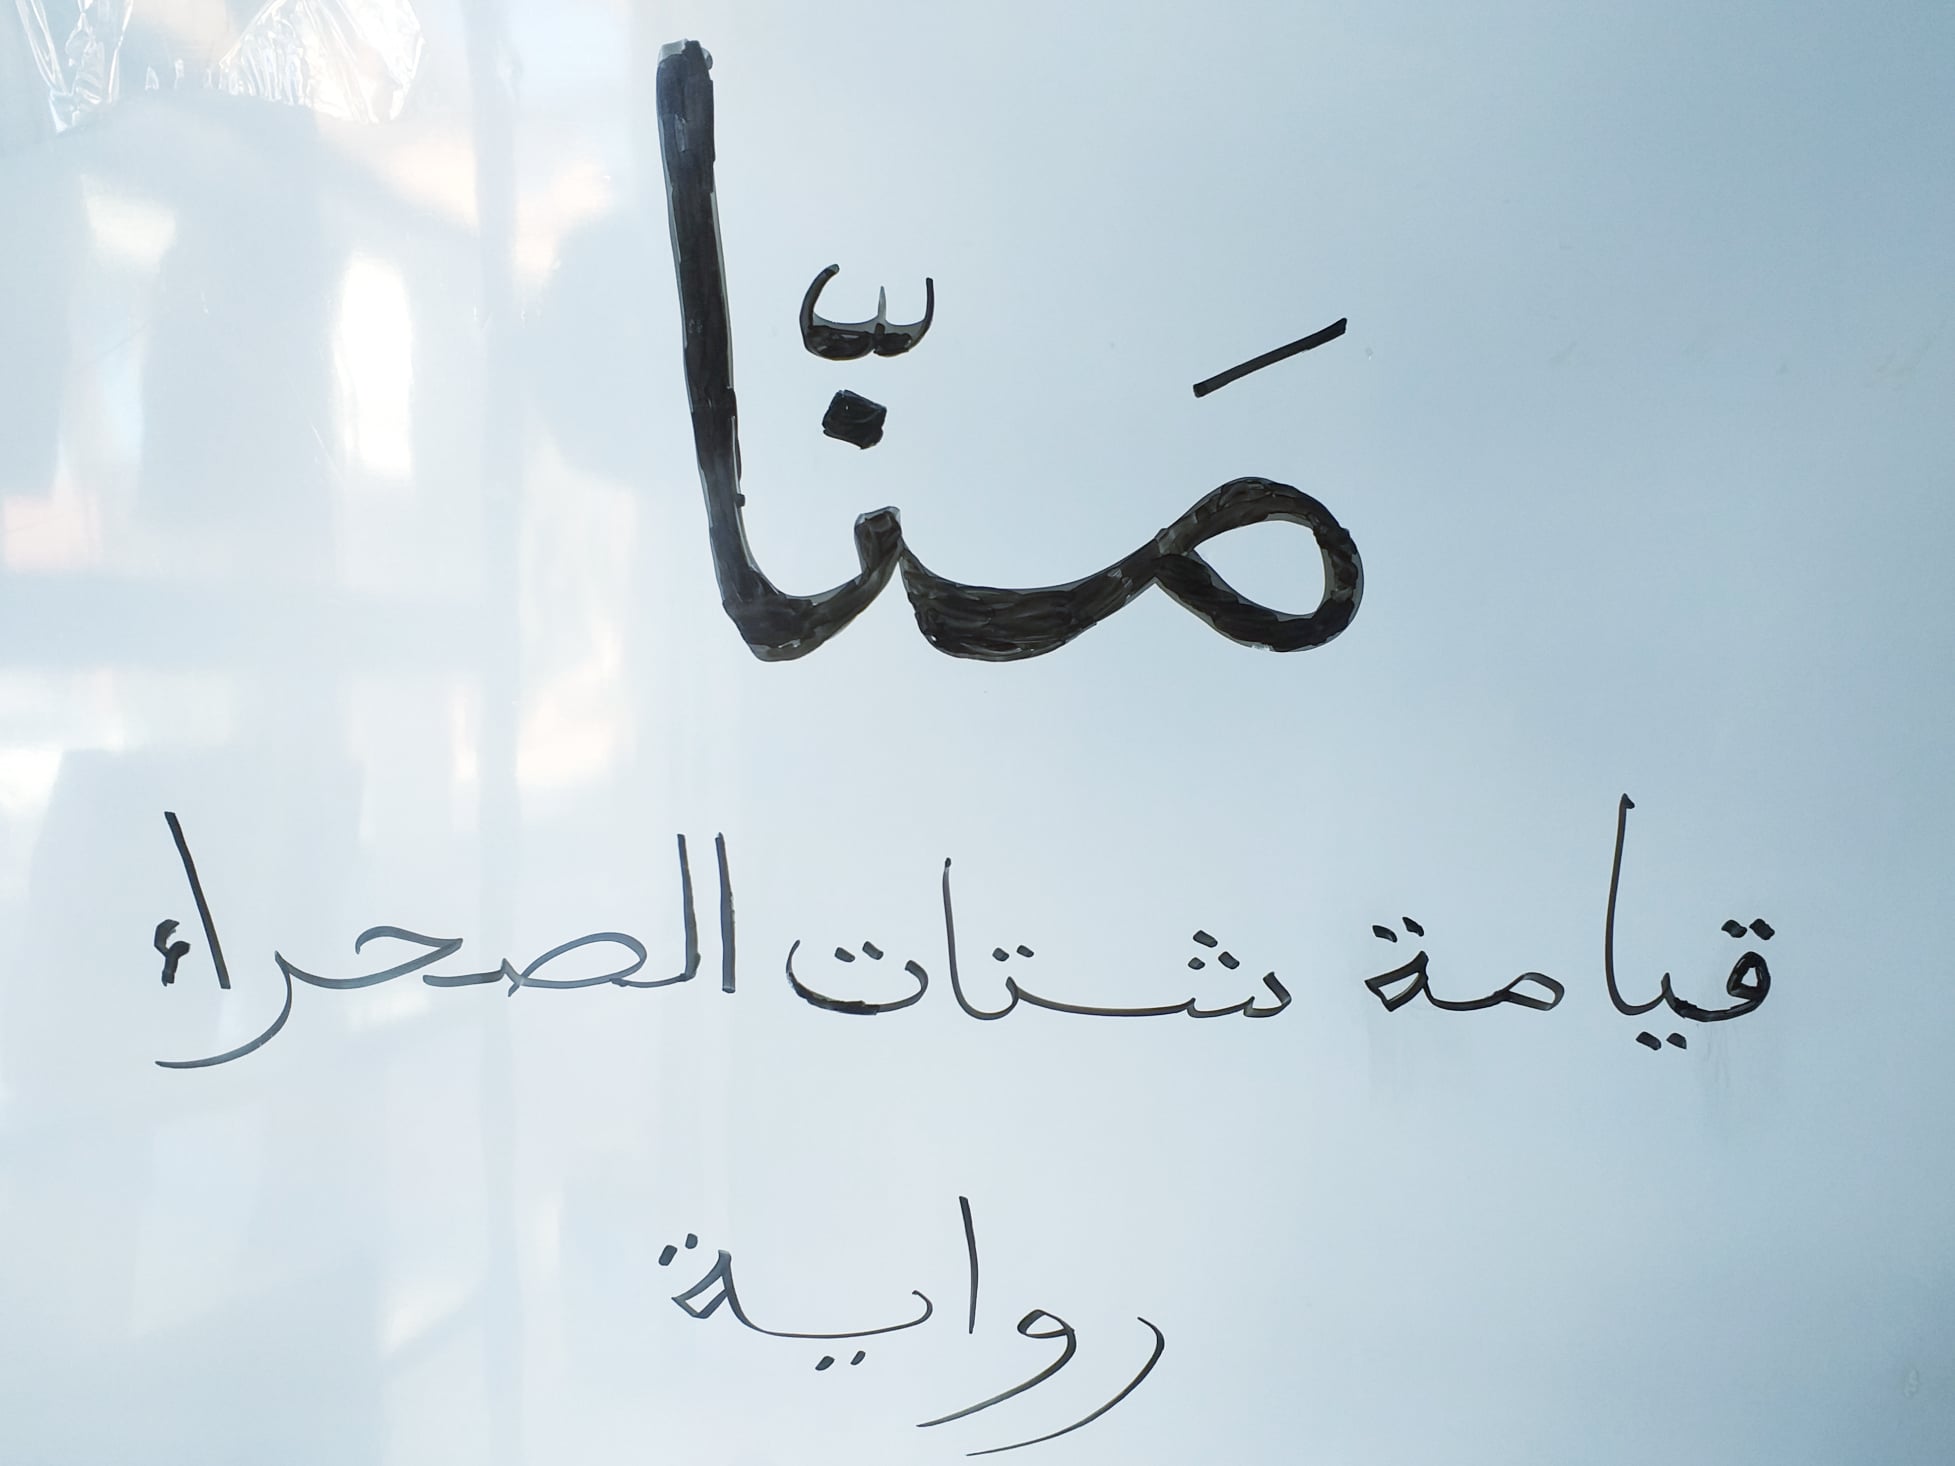 مَنّا
قيامة شتات الصحراء
رواية